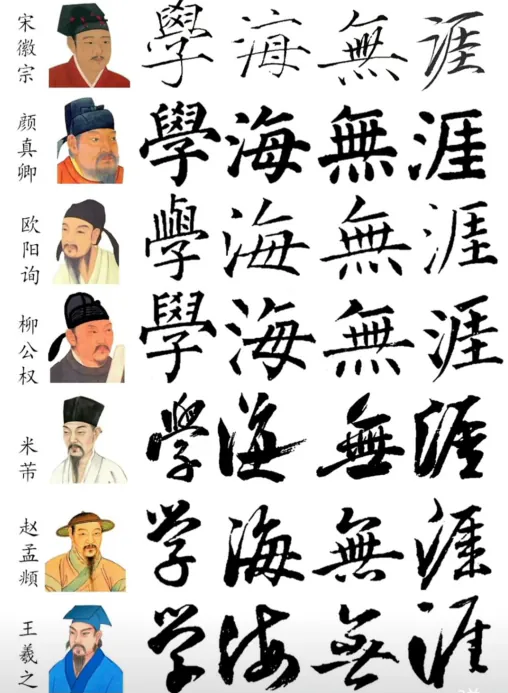 宋徽宗 學海無涯
颜真卿 學海無涯
欧阳询 學海無涯
柳公权 學海無涯
米芾 學海無涯
赵孟頫 学海無涯
王羲之 学海無涯